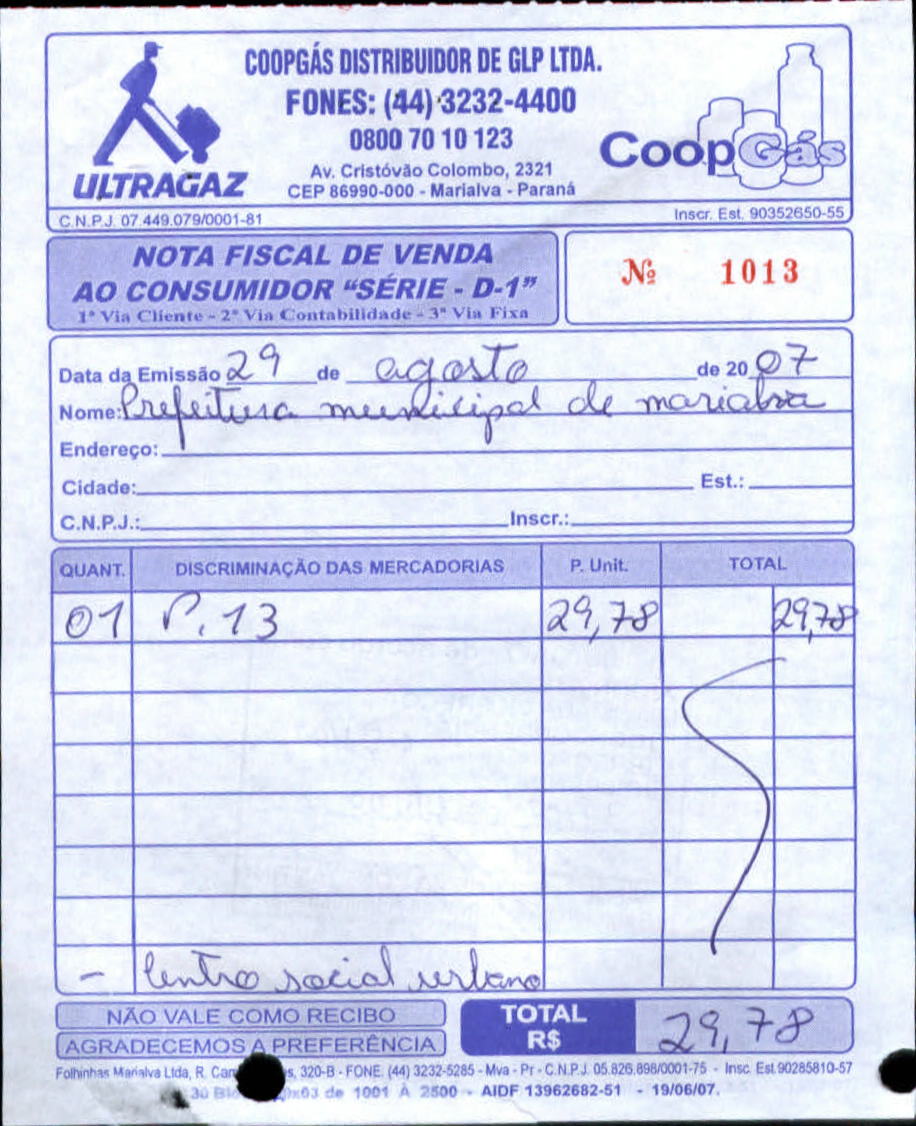 COOPGÁS DISTRIBUIDOR DE GLP LTDA.
FONES: (44) 3232-4400
0800 70 10 123
Av. Cristóvão Colombo, 2321
CEP 86990-000 - Marialva - Paraná
ULTRAGAZ
CoopGás
C.N.P.J. 07.449.079/0001-81
Inscr. Est. 90352650-55
NOTA FISCAL DE VENDA
AO CONSUMIDOR "SÉRIE - D-1"
1ª Via Cliente - 2ª Via Contabilidade - 3ª Via Fixa
Nº 1013
Data da Emissão 29 de agosto de 20 07
Nome: Prefeitura municipal de marialva
Endereço:
Cidade: Est.:
C.N.P.J.: Inscr.:
QUANT. DISCRIMINAÇÃO DAS MERCADORIAS P. Unit. TOTAL
01 P. 13 29,78 29,78
- Centro social urbano
NÃO VALE COMO RECIBO
AGRADECEMOS A PREFERÊNCIA
TOTAL
R$ 29,78
Folhinhas Marialva Ltda, R. 320-B - FONE. (44) 3232-5285 - Mva - Pr - C.N.P.J. 05.826.898/0001-75 - Insc. Est.90285810-57
30 de 1001 À 2500 - AIDF 13962682-51 - 19/06/07.